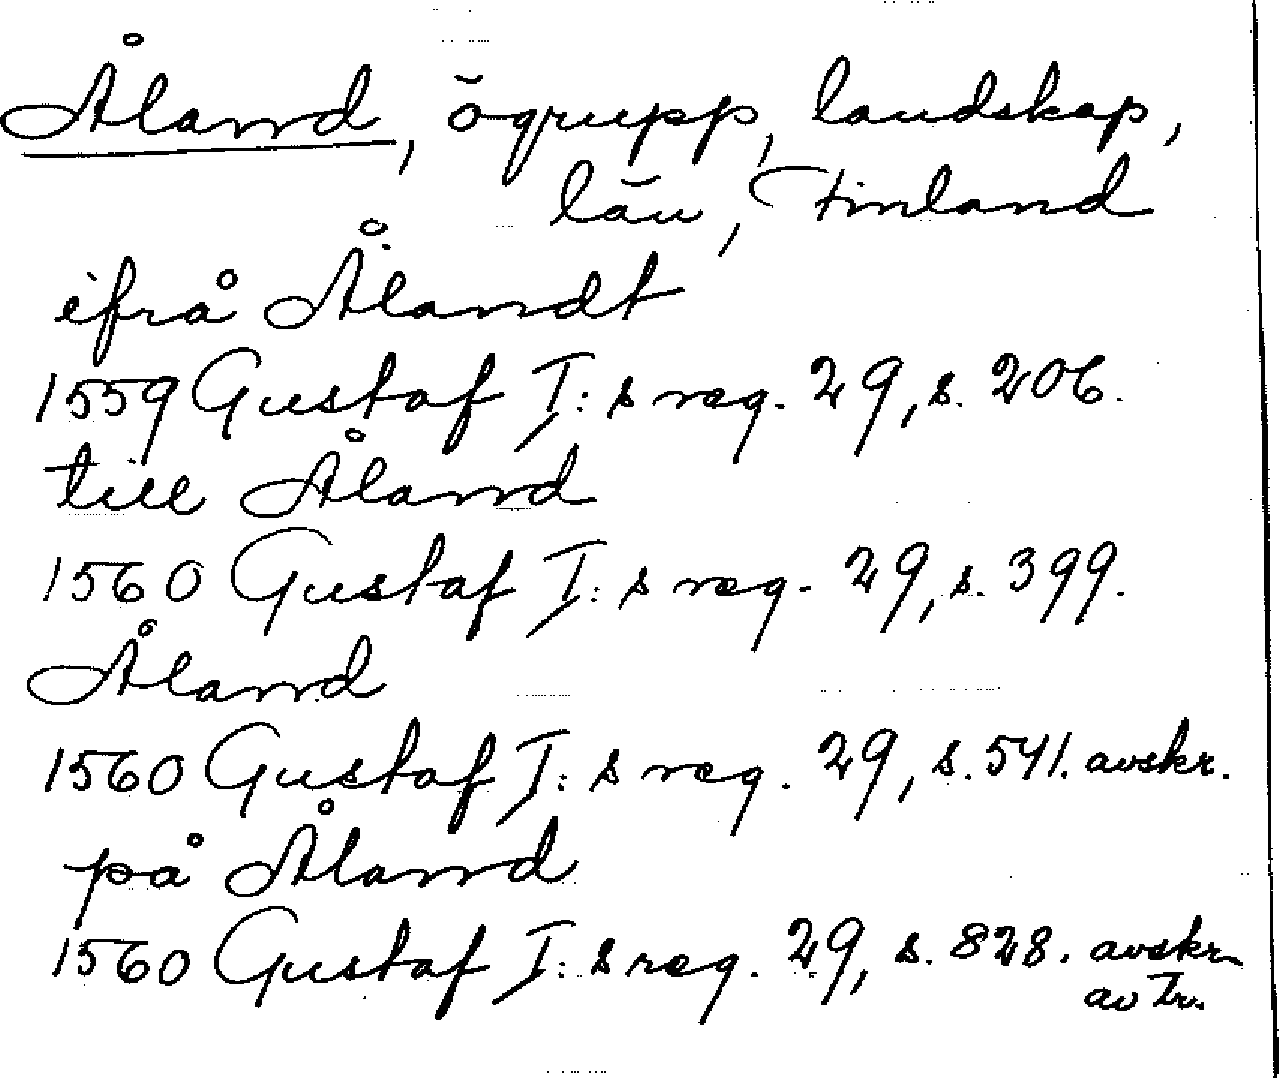 Åland, ögrupp, landskap,
län, Finland
ifrå Ålandt
1559 Gustaf I:s reg. 29, s. 206.
till Åland
1560 Gustaf I:s reg. 29, s. 399.
Åland
1560 Gustaf I:s reg. 29, s. 541. avskr.
på Åland
1560 Gustaf I:s reg. 29, s. 828. avskr.
av Tr.